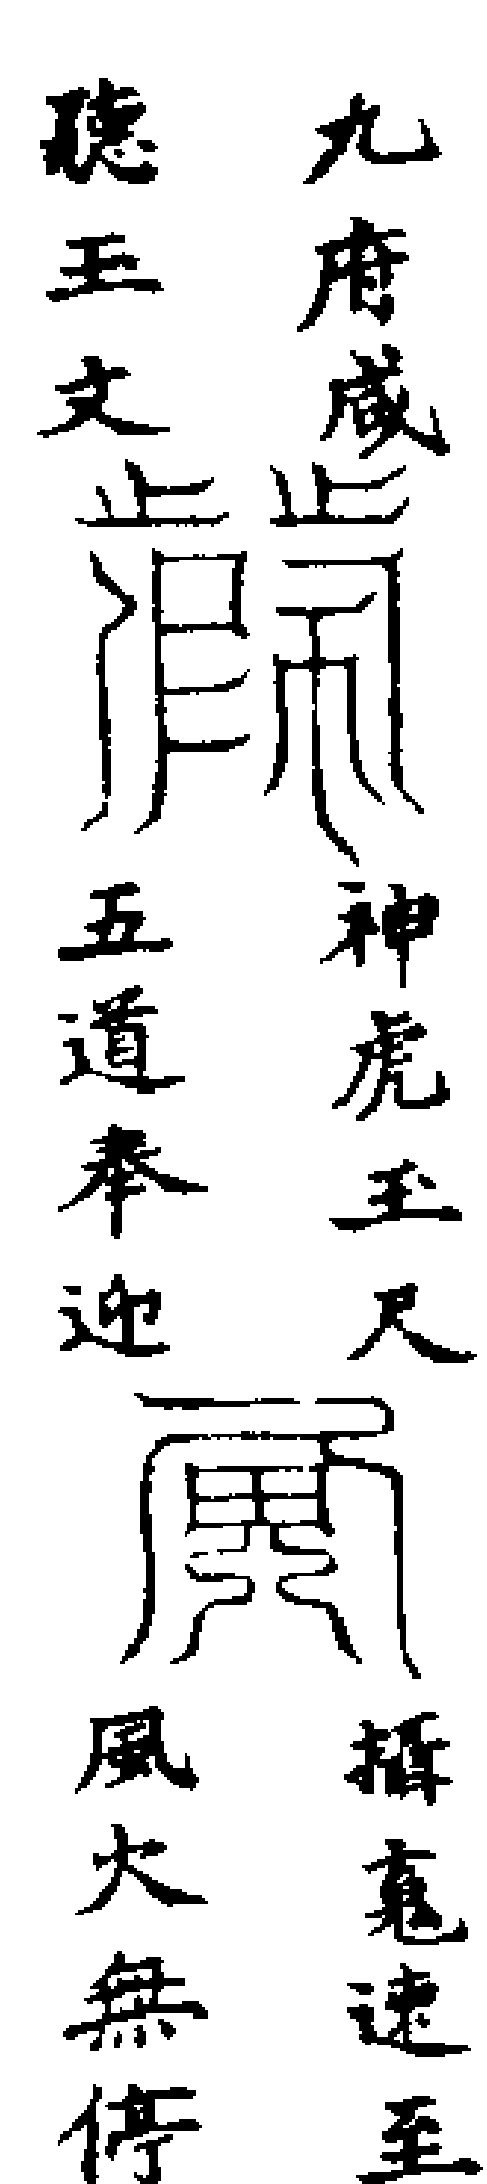 九府咸
聽玉文
神虎玉尺
五道奉迎
攝速至
風火無停